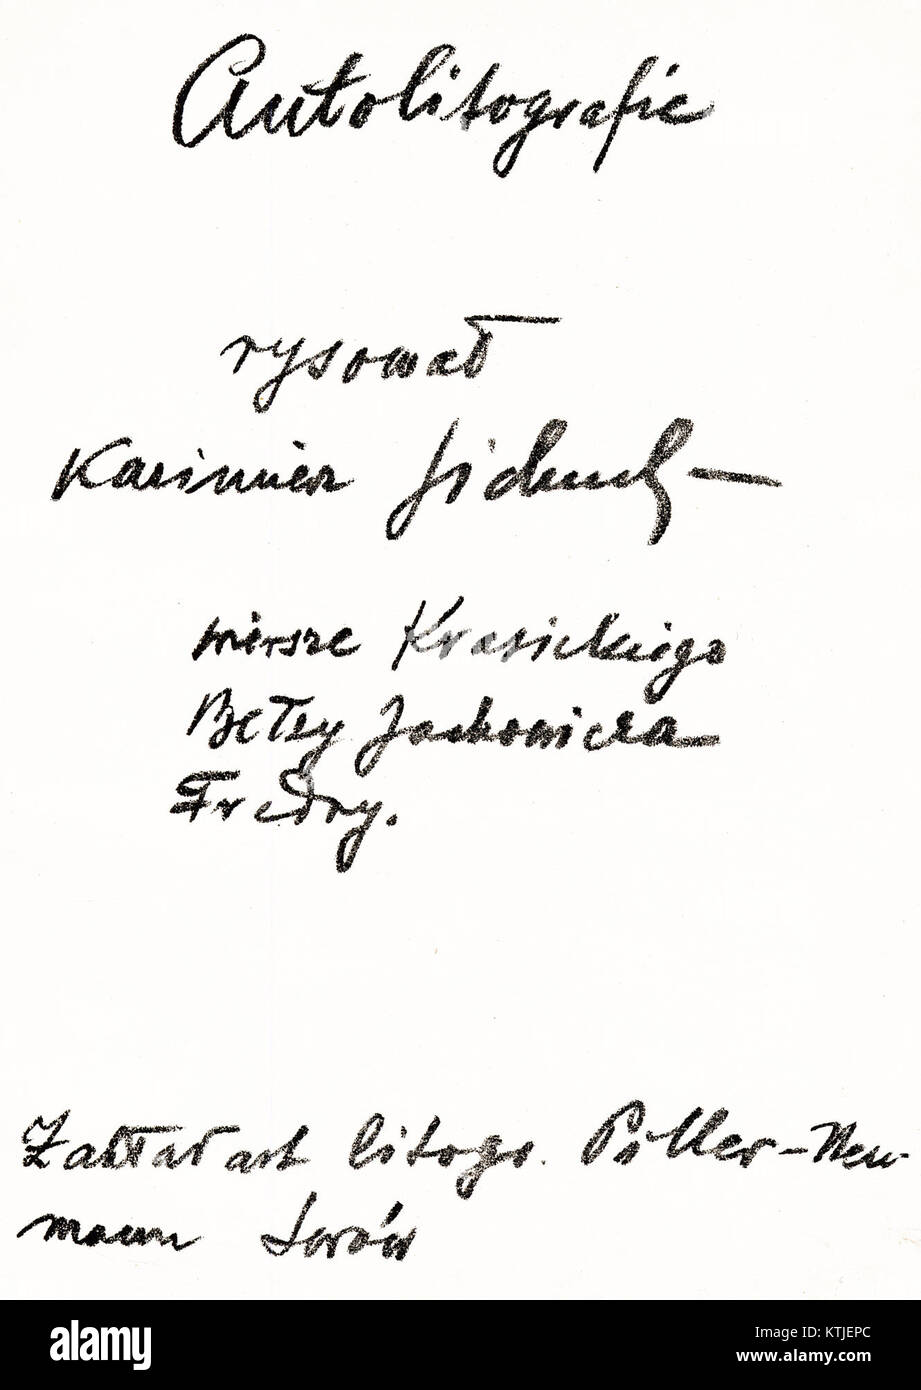 Autolitografie
rysował
Kazimierz Sichulski
wiersze Krasickiego
Betsy Jachowicza
Fredry.
Zakład art litogr. Piller-Neu-
mann Lwów
a
alamy
Image ID: KTJEPC
www.alamy.com